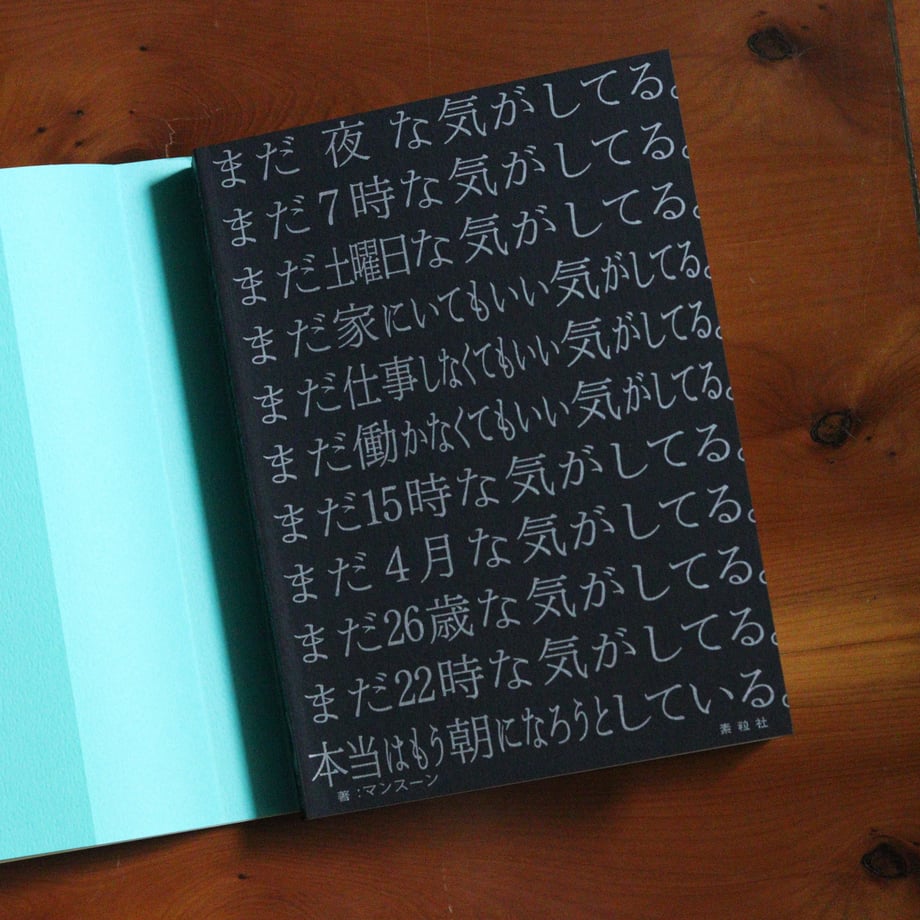 まだ夜な気がしてる。
まだ7時な気がしてる。
まだ土曜日な気がしてる。
まだ家にいてもいい気がしてる。
まだ仕事しなくてもいい気がしてる。
まだ働かなくてもいい気がしてる。
まだ15時な気がしてる。
まだ4月な気がしてる。
まだ26歳な気がしてる。
まだ22時な気がしてる。
本当はもう朝になろうとしている。
著：マンスーン
素粒社